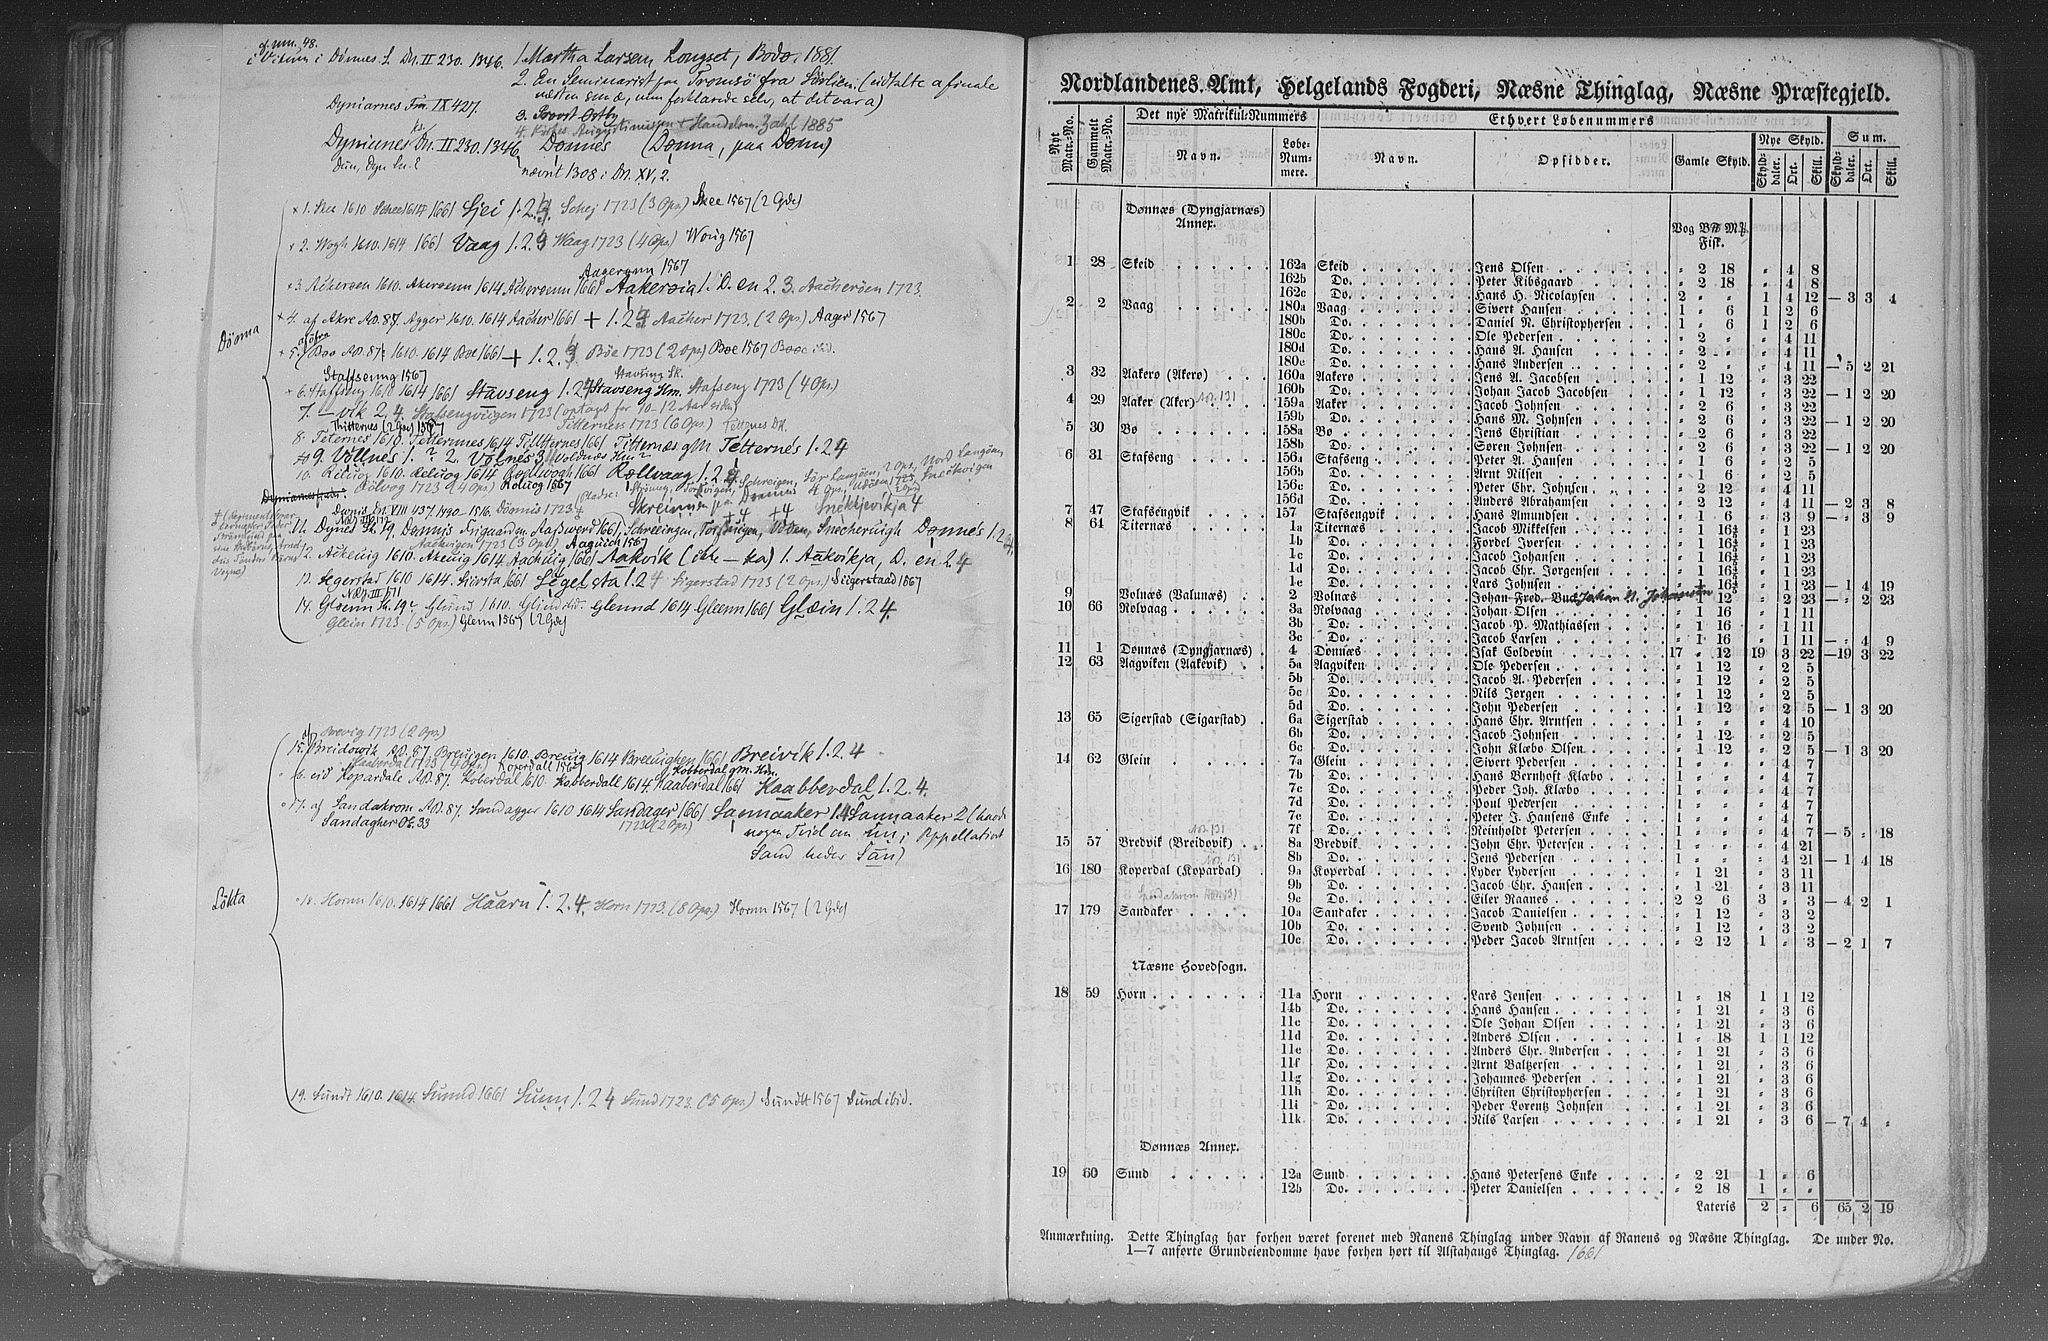 cf. nm. 48.
i Vitum i Dønnes S. Dn. II 230. 1346. 1. Martha Larsen Longset, Bodø, 1881.
2. En Seminarist paa Tromsø fra
næsten som æ, men forklarede selv, at det var a)
Dyniarnes Fm. IX 427.
4. Handelsm. Zahl 1885
Dyniarnes Dn. II 230. 1346. Dønnes (Dønna, paa Dønn)
nævnt 1308 i Dn. XV, 2.
Dønna
1. Skee 1610 Schee 1614 1661 Sjei 1.2.3. Schej 1723 (3 Ops.) Skee 1567 (2 Gde)
2. Wogh 1610. 1614 1661 Vaag 1.2.3 Waag 1723 (4 Ops.) Woug 1567
Aagerøenn 1567
3. Acherøen 1610. Akerøenn 1614 Acherøenn 1661 Aakerøia 1. D. en 2. 3. Aacherøen 1723.
4. af Akre AB. 87. Agger 1610. 1614 Aacher 1661 + 1.2.3 Aacher 1723. (2 Ops.) Aager 1567
5. Boo AB. 87. 1610. 1614 Boe 1661 + 1.2.3. Bøe 1723 (2 Ops.) Boe 1567 Booe ibid.
Staffseung 1567
6. Stafseng 1610 1614 1661 Stavseng 1.2.4 Stavseng Km. Stafseng 1723 (4 Ops.)
7. – vik 2. 4. Stafsengviigen 1723 (optagt for 10-12 Aar siden)
Titternes (2 Gde) 1567 Titternes 1723 (6 Ops.)
8. Teternes 1610. Tetternnes 1614 Titternes 1661 Titternæs gM Tetternes 1.2.4
9. Vollnes 1. ? 2. Volnes 3
10. Roluog 1610. Roluog 1614 Roelwogh 1661 Rollvaag 1.2.
Rölvog 1723 (4 Ops.) Roluog 1567
Dønis Dn. VIII 437. 1490-1516. Dönnis 1723
11. Dynes Sk. 19. Dønnis Friigaarden
12. Ackeuig 1610. Akeuig 1614 Aachuig 1661 Aakvik (ikke – ka) 1. Aakvikja, D. en 2.4
13. Segerstad 1610 1614. Siirsta 1661 Sigelsta 1.2.4 Sigerstad 1723 (2 Ops.) Siigerstaad 1567
14. Gloenn Sk. 19. Glund 1610. Glind ibid. Glennd 1614 Gleenn 1661 Glæin 1.2.4.
Glein 1723. (5 Ops.) Glenn 1567 (2 Gde)
Brevig 1723 (2 Ops.)
15. Breidowik AB. 87. Breuigen 1610. Breuig 1614 Breuighen 1661 Breivik 1.2.4
Kaaberdal 1723 (4 Ops.) Koperdall 1567 Kobberdal gm. Km.
16. vid Kopardale AB. 87. Koberdal 1610. Kobberdall 1614 Kaaberdal 1661 Kaabberdal 1.2.4.
17. af Sandakrom AB. 87. Sandagger 1610 1614 Sandager 1661 Sannaaker 1.4 Sannaaker 2 (havde
Sandagher OE. 93 1723 (2 Ops.)
nogen Tvivl om nn; Appellativet
Sand heder Sân)
Løkta
18. Hornn 1610. 1614 1661 Håarn 1.2.4. Horn 1723. (8 Ops.) Hornn 1567 (2 Gde)
19. Sundt 1610. 1614 Sunnd 1661 Sunn 1.2.4 Sund 1723. (5 Ops.) Sundt 1567 Sund ibid.
Nordlandenes Amt, Helgelands Fogderi, Næsne Thinglag, Næsne Præstegjeld.
Nyt Matr.-No. Gammelt Matr.-No. Det nye Matrikul-Nummers Navn. Løbe-Nummere. Ethvert Løbenummers Navn. Opsidder. Gamle Skyld. Nye Skyld. Skyld-daler. Ort. Skill. Sum. Skyld-daler. Ort. Skill.
Dønnæs (Dyngjarnæs) Annex. Vog B℔ M℔ Fisk.
1 28 Skeid 162a Skeid Jens Olsen " 2 18 " 4 8
162b Do. Peter Kibsgaard " 2 18 " 4 8
162c Do. Hans H. Nicolaysen 2 " " 1 4 12 – 3 3 4
2 2 Vaag 180a Vaag Sivert Hansen 1 " 6 1 2 6
180b Do. Daniel N. Christophersen 1 " 6 1 2 6
180c Do. Ole Pedersen " 2 " " 4 11
180d Do. Hans A. Hansen " 2 " " 4 11
180e Do. Hans Andersen " 2 " " 4 11 – 5 2 21
3 32 Aakerø (Akerø) 160a Aakerø Jens A. Jacobsen " 1 12 " 3 22
160b Do. Johan Jacob Jacobsen " 1 12 " 3 22 – 1 2 20
4 29 Aaker (Aker) No. 131 159a Aaker Jacob Johnsen " 2 6 " 3 22
159b Do. Hans M. Johnsen " 2 6 " 3 22 – 1 2 20
5 30 Bo 158a Bo Jens Christian " 2 6 " 3 22
158b Do. Søren Johnsen " 2 6 " 3 22 – 1 2 20
6 31 Stafseng 156a Stafseng Peter A. Hansen " 1 6 " 2 5
156b Do. Arnt Nilsen " 1 6 " 2 5
156c Do. Peter Chr. Johnsen " 2 12 " 4 11
156d Do. Anders Abrahamsen " 2 12 " 4 11 – 2 3 8
7 47 Stafsengvik 157 Stafsengvik Hans Amundsen " 1 6 " 3 9 – " 3 9
8 64 Titernæs 1a Titernæs Jacob Mikkelsen " 1 16⅘ " 1 23
1b Do. Fordel Iversen " 1 16⅘ " 1 23
1c Do. Jacob Johansen " 1 16⅘ " 1 23
1d Do. Jacob Chr. Jørgensen " 1 16⅘ " 1 23
1e Do. Lars Johnsen " 1 16⅘ " 1 23 – 1 4 19
9 Volnæs (Valunæs) 2 Volnæs Johan Fred. Johan N. Johansen " 1 12 " 2 23 – " 2 23
10 66 Rolvaag 3a Rolvaag Johan Olsen " 1 16 " 1 11
3b Do. Jacob P. Mathiassen " 1 16 " 1 11
3c Do. Jacob Larsen " 1 16 " 1 11 – " 4 9
11 1 Dønnæs (Dyngjarnæs) 4 Dønnæs Isak Coldevin 17 " 12 19 3 22 – 19 3 22
12 63 Aagviken (Aakevik) 5a Aagviken Ole Pedersen " 1 12 " 2 5
5b Do. Jacob A. Pedersen " 1 12 " 2 5
5c Do. Nils Jørgen " 1 12 " 2 5
5d Do. John Pedersen " 1 12 " 2 5 – 1 3 20
13 65 Sigerstad (Sigarstad) 6a Sigerstad Hans Chr. Arntsen 1 " " " 4 10
6b Do. Jacob Johnsen " 1 12 " 2 5
6c Do. John Klæbo Olsen " 1 12 " 2 5 – 1 3 20
14 62 Glein 7a Glein Sivert Pedersen 1 " " " 4 7
7b Do. Hans Bernhoft Klæbo 1 " " " 4 7
7c Do. Peder Joh. Klæbo 1 " " " 4 7
7d Do. Poul Pedersen 1 " " " 4 7
7e Do. Peter J. Hansens Enke 1 " " " 4 7
7f Do. Reinholdt Petersen 1 " " " 4 7 – 5 " 18
No. 131
15 57 Bredvik (Breidovik) 8a Bredvik John Chr. Petersen 1 " " " 4 21
8b Do. Jens Pedersen 1 " " " 4 21 – 1 4 18
No. 131
16 180 Koperdal (Kopardal) 9a Koperdal Lyder Lydersen " 1 21 " 3 11
9b Do. Jacob Chr. Hansen " 1 21 " 3 11
9c Do. Eiler Raanes 2 2 6 3 " 3 – 4 2 1
Sandakrom No. 131
17 179 Sandaker 10a Sandaker Jacob Danielsen " 1 12 " 3 2
10b Do. Svend Johnsen " 1 12 " 3 2
10c Do. Peder Jacob Arntsen " 2 12 1 " 3 – 2 1 7
Næsne Hovedsogn.
18 59 Horn 11a Horn Lars Jensen 1 " 18 1 1 12
14b Do. Hans Hansen " 1 21 " 3 6
11c Do. Ole Johan Olsen " 1 21 " 3 6
11d Do. Anders Olsen 1 " 18 1 1 12
11e Do. Anders Chr. Andersen " 1 21 " 3 6
11f Do. Arnt Baltzersen " 1 21 " 3 6
11g Do. Johannes Pedersen " 1 21 " 3 6
11h Do. Christen Christophersen " 1 21 " 3 6
11i Do. Peder Lorentz Johnsen " 1 21 " 3 6
11k Do. Nils Larsen " 1 21 " 3 6 – 7 4 "
Dønnæs Annex.
19 60 Sund 12a Sund Hans Petersens Enke " 2 21 1 " 6
12b Do. Peter Danielsen " 2 18 1 " "
Lateris 2 " 6 65 2 19
Anmærkning. Dette Thinglag har forhen været forenet med Ranens Thinglag under Navn af Ranens og Næsne Thinglag. De under No.
1—7 anførte Grundeiendomme have forhen hørt til Alstahaugs Thinglag. 1661